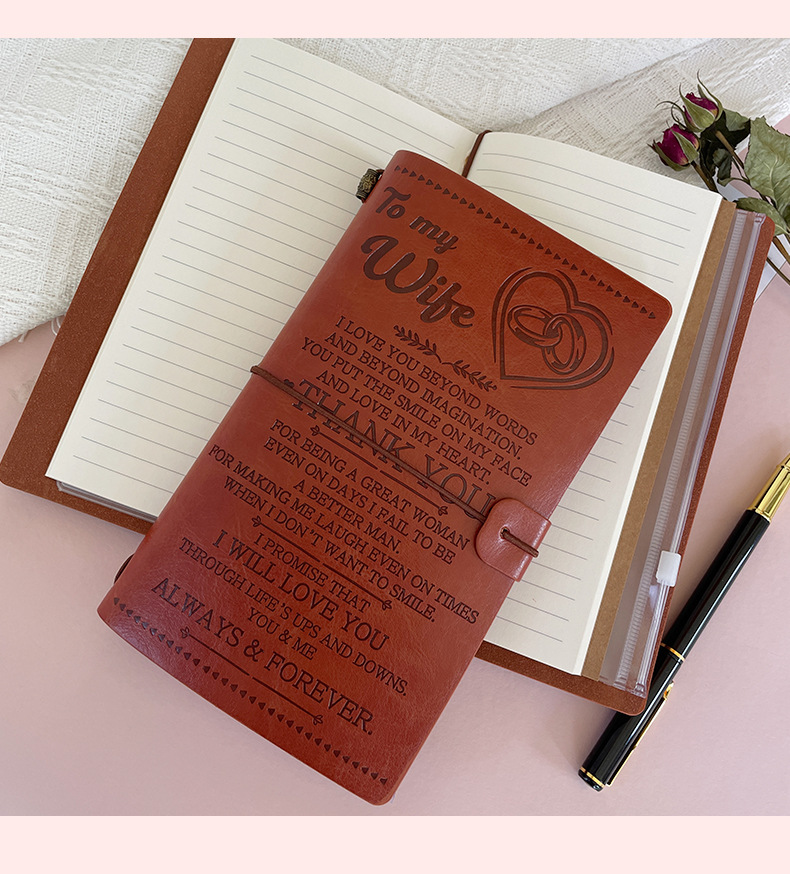 To my
Wife
I LOVE YOU BEYOND WORDS
AND BEYOND IMAGINATION.
YOU PUT THE SMILE ON MY FACE
AND LOVE IN MY HEART.
THANK YOU
FOR BEING A GREAT WOMAN
EVEN ON DAYS I FAIL TO BE
A BETTER MAN.
FOR MAKING ME LAUGH EVEN ON TIMES
WHEN I DON'T WANT TO SMILE.
I PROMISE THAT
I WILL LOVE YOU
THROUGH LIFE'S UPS AND DOWNS.
YOU & ME
ALWAYS & FOREVER.